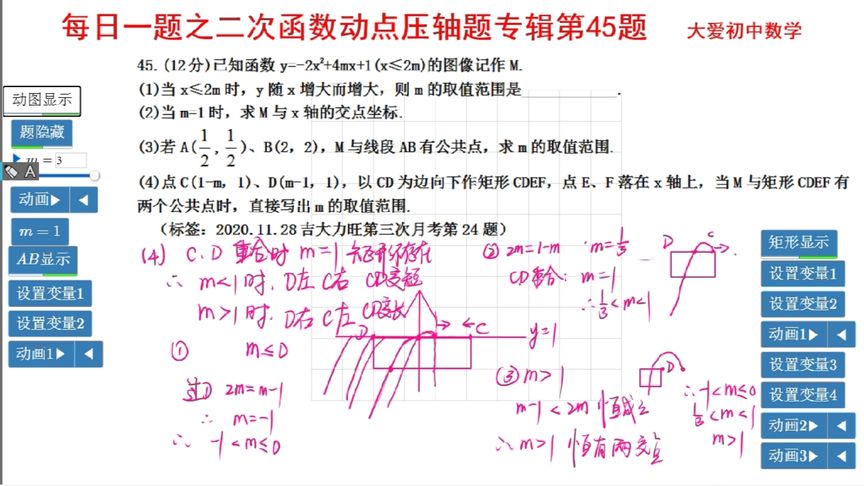 每日一题之二次函数动点压轴题专辑第45题
大爱初中数学
45.(12分)已知函数 y=-2x²+4mx+1(x≤2m)的图像记作 M.
(1)当 x≤2m 时，y 随 x 增大而增大，则 m 的取值范围是____________.
(2)当 m=1 时，求 M 与 x 轴的交点坐标.
(3)若 A(1/2, 1/2)、B(2, 2)，M 与线段 AB 有公共点，求 m 的取值范围.
(4)点 C(1-m, 1)、D(m-1, 1)，以 CD 为边向下作矩形 CDEF，点 E、F 落在 x 轴上，当 M 与矩形 CDEF 有
两个公共点时，直接写出 m 的取值范围.
(标签：2020.11.28 吉大力旺第三次月考第 24 题)
动图显示
题隐藏
m = 3
A
动画▶ ◀
m = 1
AB显示
设置变量1
设置变量2
动画1▶ ◀
(4) C、D 重合时 m=1 矩形不存在
∴ m<1时, D左 C右 CD变短
m>1时, D右 C左 CD变长
① m≤0
过D 2m=m-1
∴ m=-1
∴ -1<m≤0
D C
y=1
② 2m=1-m m=1/3
CD重合: m=1
∴ 1/3<m<1
③ m>1
m-1<2m 恒成立
∴ m>1 恒有两交点
D C
D
∴ -1<m≤0
1/3<m<1
m>1
矩形显示
设置变量1
设置变量2
动画1▶ ◀
设置变量3
设置变量4
动画2▶ ◀
动画3▶ ◀